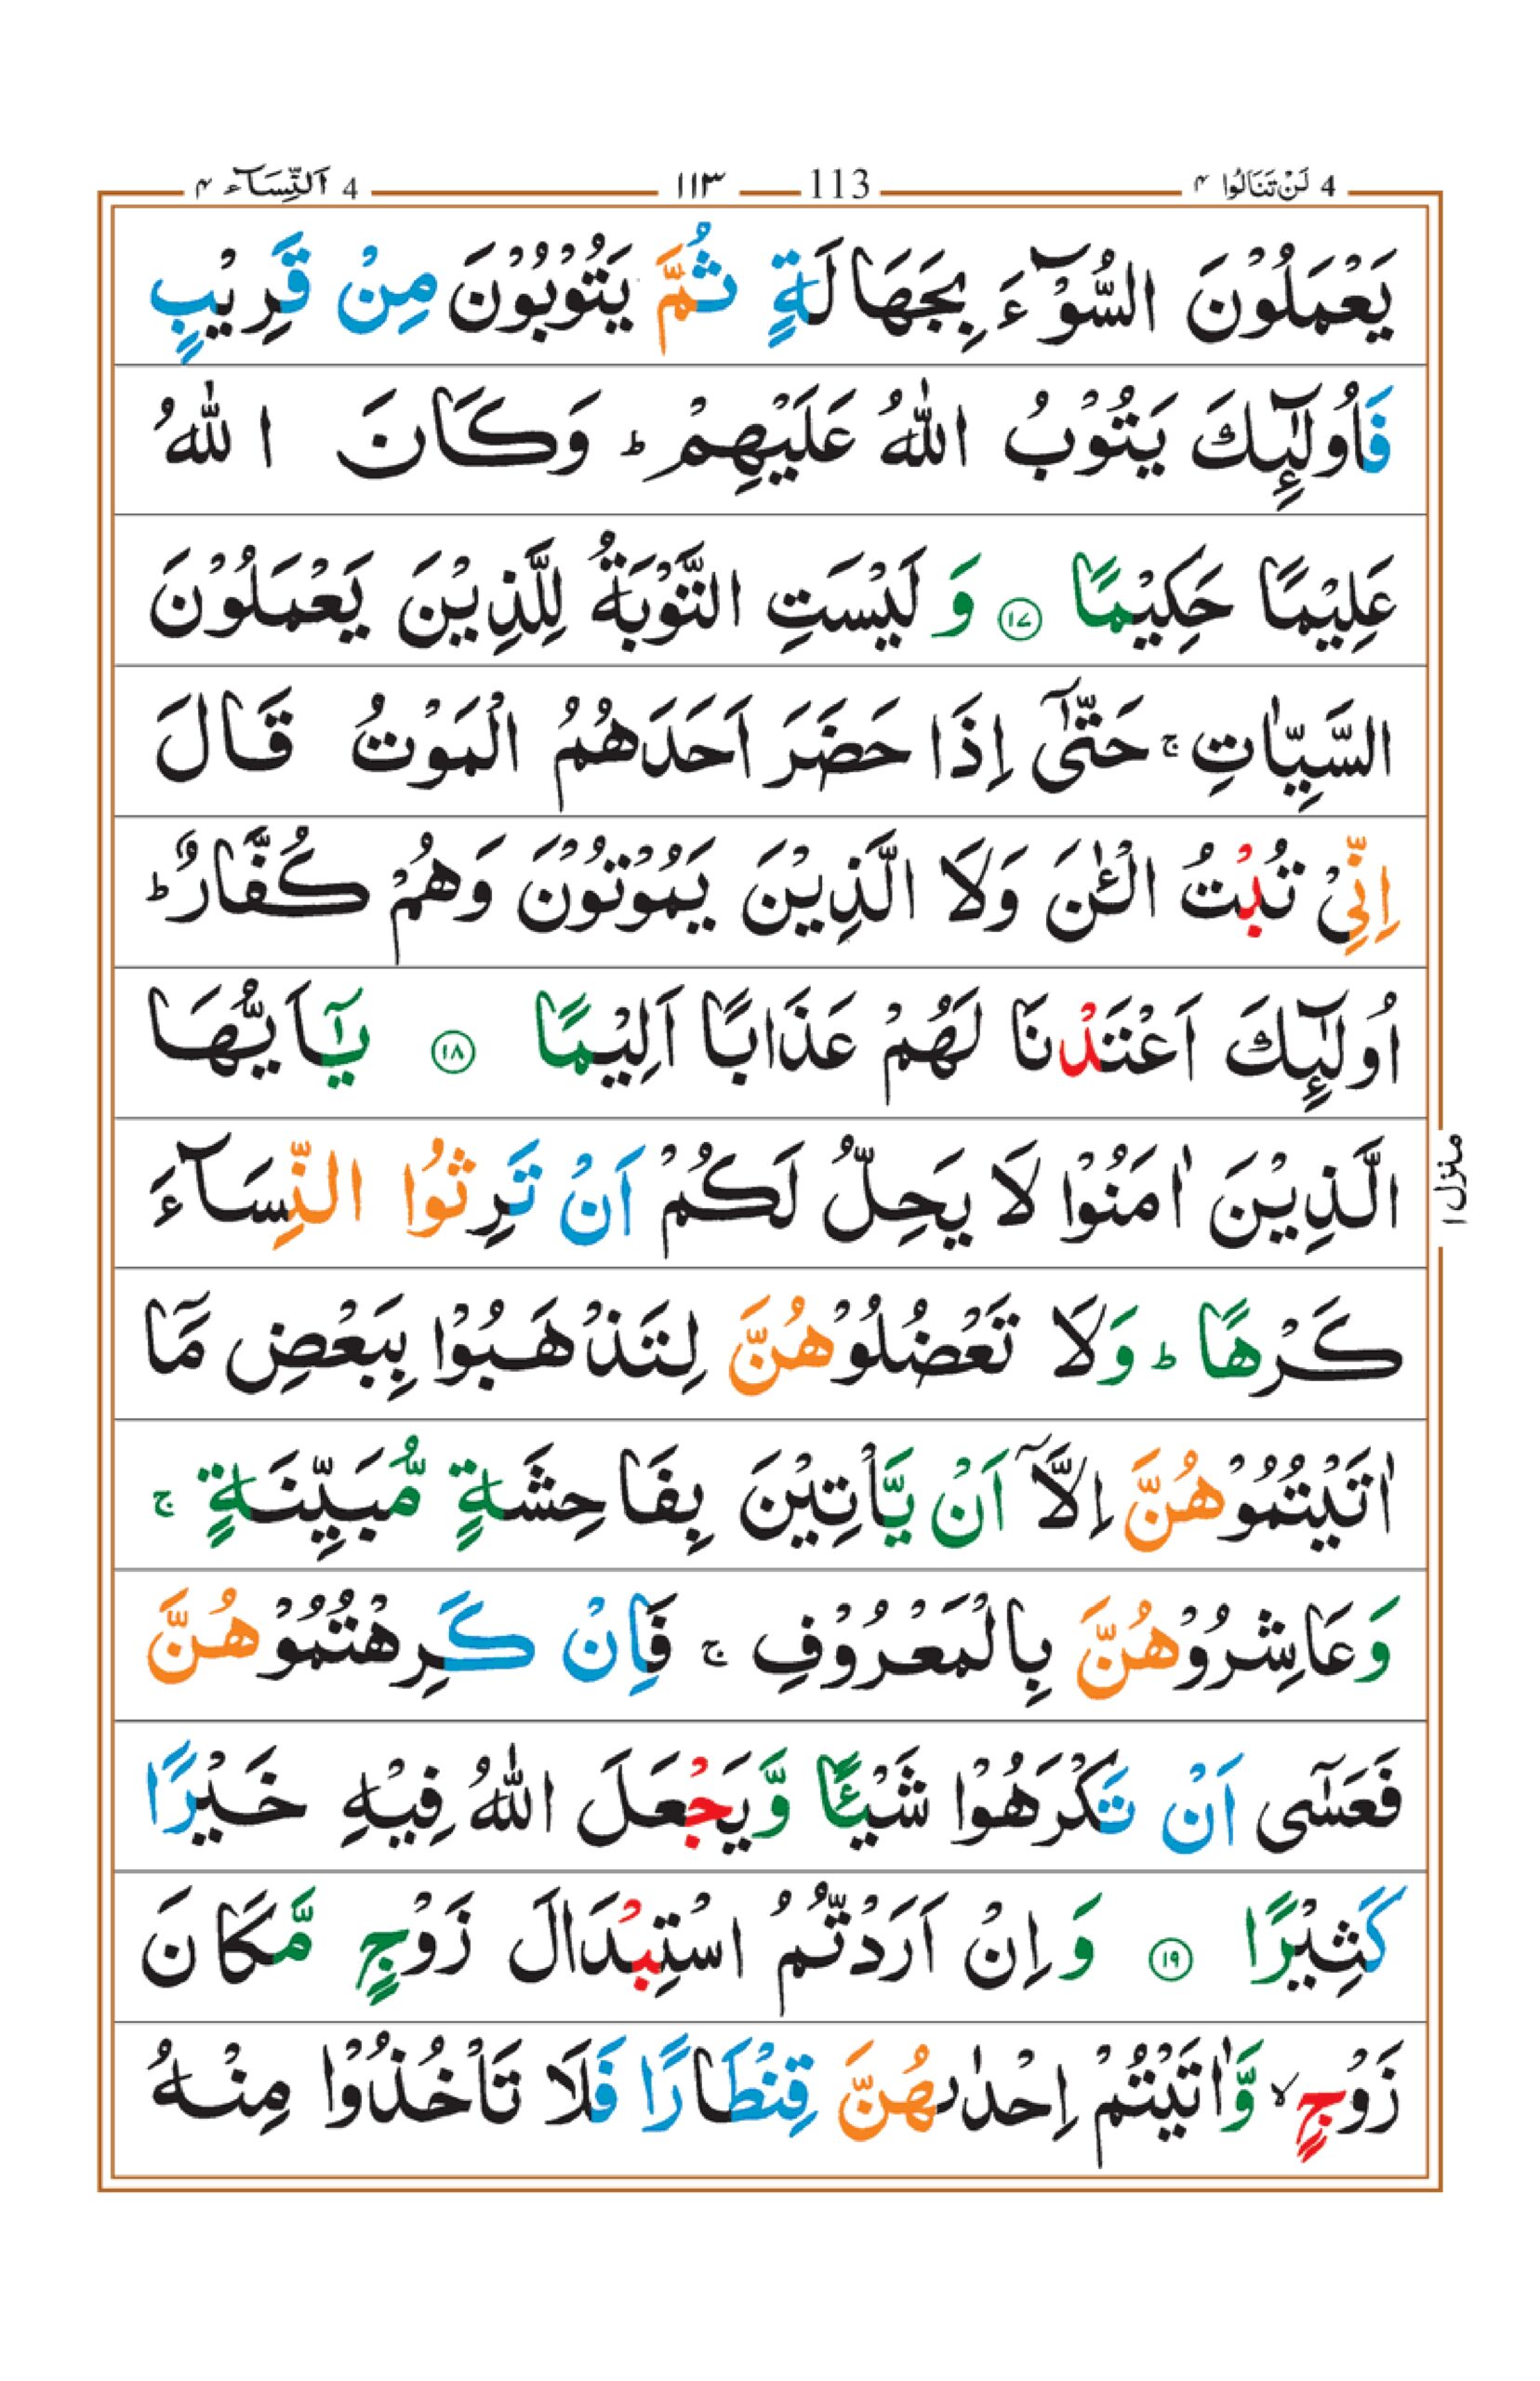 4 لَنْ تَنَالُوا ۴ 113 ۱۱۳ 4 اَلنِّسَآء ۴
يَعْمَلُوْنَ السُّوْٓءَ بِجَهَالَةٍ ثُمَّ يَتُوْبُوْنَ مِنْ قَرِيْبٍ
فَاُولٰٓئِكَ يَتُوْبُ اللّٰهُ عَلَيْهِمْ ؕ وَكَانَ اللّٰهُ
عَلِيْمًا حَكِيْمًا ۱۷ وَ لَيْسَتِ التَّوْبَةُ لِلَّذِيْنَ يَعْمَلُوْنَ
السَّيِّاٰتِ ۚ حَتّٰٓى اِذَا حَضَرَ اَحَدَهُمُ الْمَوْتُ قَالَ
اِنِّىْ تُبْتُ الْـٰٔنَ وَلَا الَّذِيْنَ يَمُوْتُوْنَ وَهُمْ كُفَّارٌ ؕ
اُولٰٓئِكَ اَعْتَدْنَا لَهُمْ عَذَابًا اَلِيْمًا ۱۸ يٰٓاَيُّهَا
الَّذِيْنَ اٰمَنُوْا لَا يَحِلُّ لَكُمْ اَنْ تَرِثُوا النِّسَآءَ
كَرْهًا ؕ وَلَا تَعْضُلُوْهُنَّ لِتَذْهَبُوْا بِبَعْضِ مَآ
اٰتَيْتُمُوْهُنَّ اِلَّآ اَنْ يَّاْتِيْنَ بِفَاحِشَةٍ مُّبَيِّنَةٍ ۚ
وَعَاشِرُوْهُنَّ بِالْمَعْرُوْفِ ۚ فَاِنْ كَرِهْتُمُوْهُنَّ
فَعَسٰٓى اَنْ تَكْرَهُوْا شَيْئًا وَّيَجْعَلَ اللّٰهُ فِيْهِ خَيْرًا
كَثِيْرًا ۱۹ وَاِنْ اَرَدْتُّمُ اسْتِبْدَالَ زَوْجٍ مَّكَانَ
زَوْجٍ ۙ وَّاٰتَيْتُمْ اِحْدٰىهُنَّ قِنْطَارًا فَلَا تَاْخُذُوْا مِنْهُ
منزل ۱